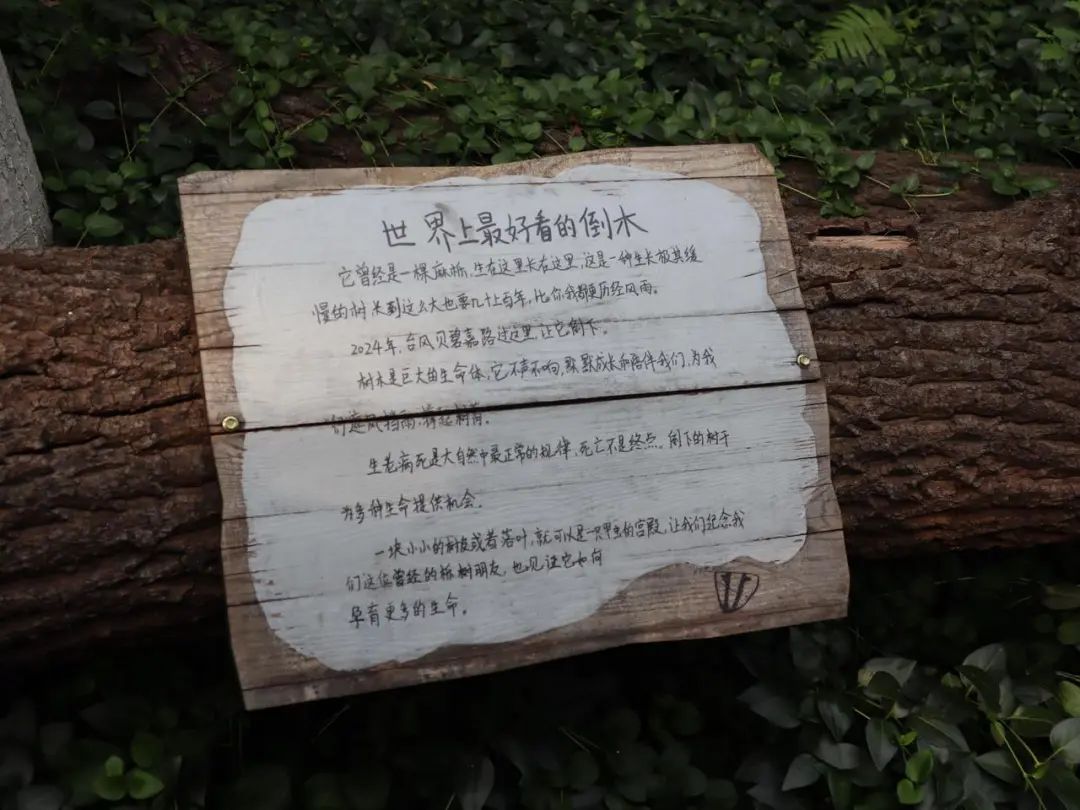 世界上最好看的倒木
它曾经是一棵麻栎,生在这里长在这里,这是一种生长极其缓
慢的树 长到这么大也要几十上百年,比你我都更历经风雨。
2024年,台风贝碧嘉路过这里,让它倒下。
树木是巨大的生命体,它不声不响,默默成长和陪伴我们,为我
们遮风挡雨,撑起树荫。
生老病死是大自然中最正常的规律,死亡不是终点。倒下的树干
为多种生命提供机会。
一块小小的树皮或者落叶,就可以是一只甲虫的宫殿,让我们纪念我
们这位曾经的栎树朋友,也见证它如何
孕育更多的生命。